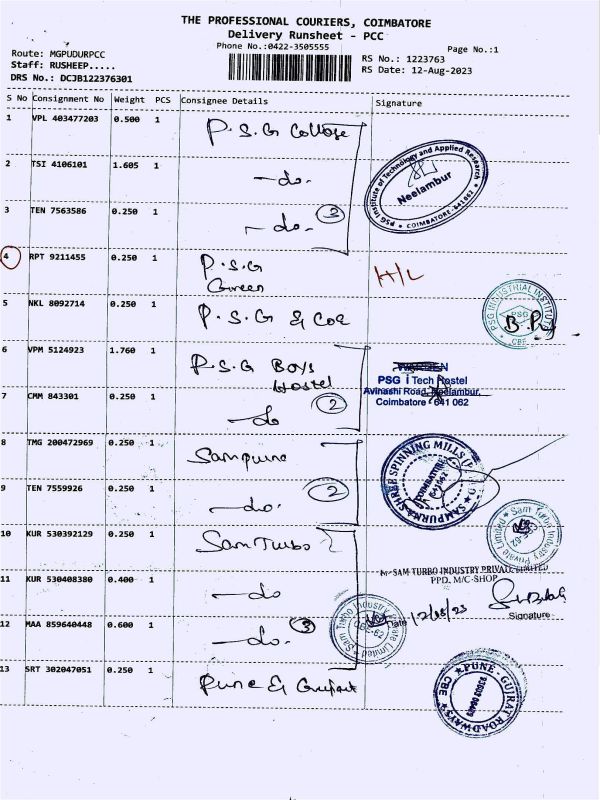 THE PROFESSIONAL COURIERS, COIMBATORE
Delivery Runsheet - PCC
Phone No.:0422-3505555
Page No.:1
Route: MGPUDURPCC
Staff: RUSHEEP.....
DRS No.: DCJB122376301
RS No.: 1223763
RS Date: 12-Aug-2023
S No Consignment No Weight PCS Consignee Details Signature
1 VPL 403477203 0.500 1 P.S.G College
PSG Institute of Technology and Applied Research
Neelambur
COIMBATORE-641 062
2 TSI 4106101 1.605 1 -do-
3 TEN 7563586 0.250 1 -do- 3
4 RPT 9211455 0.250 1 P.S.G
Green
H/L
5 NKL 8092714 0.250 1 P.S.G & Coe
PSG INDUSTRIAL INSTITUTE
PSG
CBE
6 VPM 5124923 1.760 1 P.S.G Boys
Hostel
WARDEN
PSG i Tech Hostel
Avinashi Road, Neelambur,
Coimbatore - 641 062
7 CMM 843301 0.250 1 -do 2
8 TMG 200472969 0.250 1 Sampurna
SAMPURNA SHREE SPINNING MILLS (P)
COIMBATORE
641062
9 TEN 7559926 0.250 1 -do- 2
10 KUR 530392129 0.250 1 Sam Turbo
Sam Turbo Industry Private Limited
CBE-62
11 KUR 530408380 0.400 1 -do
SAM TURBO INDUSTRY PRIVATE LIMITED
PPD. M/C-SHOP
12 MAA 859640448 0.600 1 -do- 3
Sam Turbo Industry Private Limited
CBE-62
Date 12/08/23
Signature
13 SRT 302047051 0.250 1 Pune & Gujrat
PUNE - GUJRAT ROADWAYS
CBE